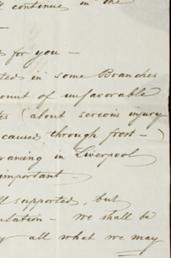 continue in the
for you —
in some Branches
ount of unfavorable
(about serious injury
caused through frost —)
waning in Liverpool
important —
ll supported, but
ulation — we shall be
all what we may